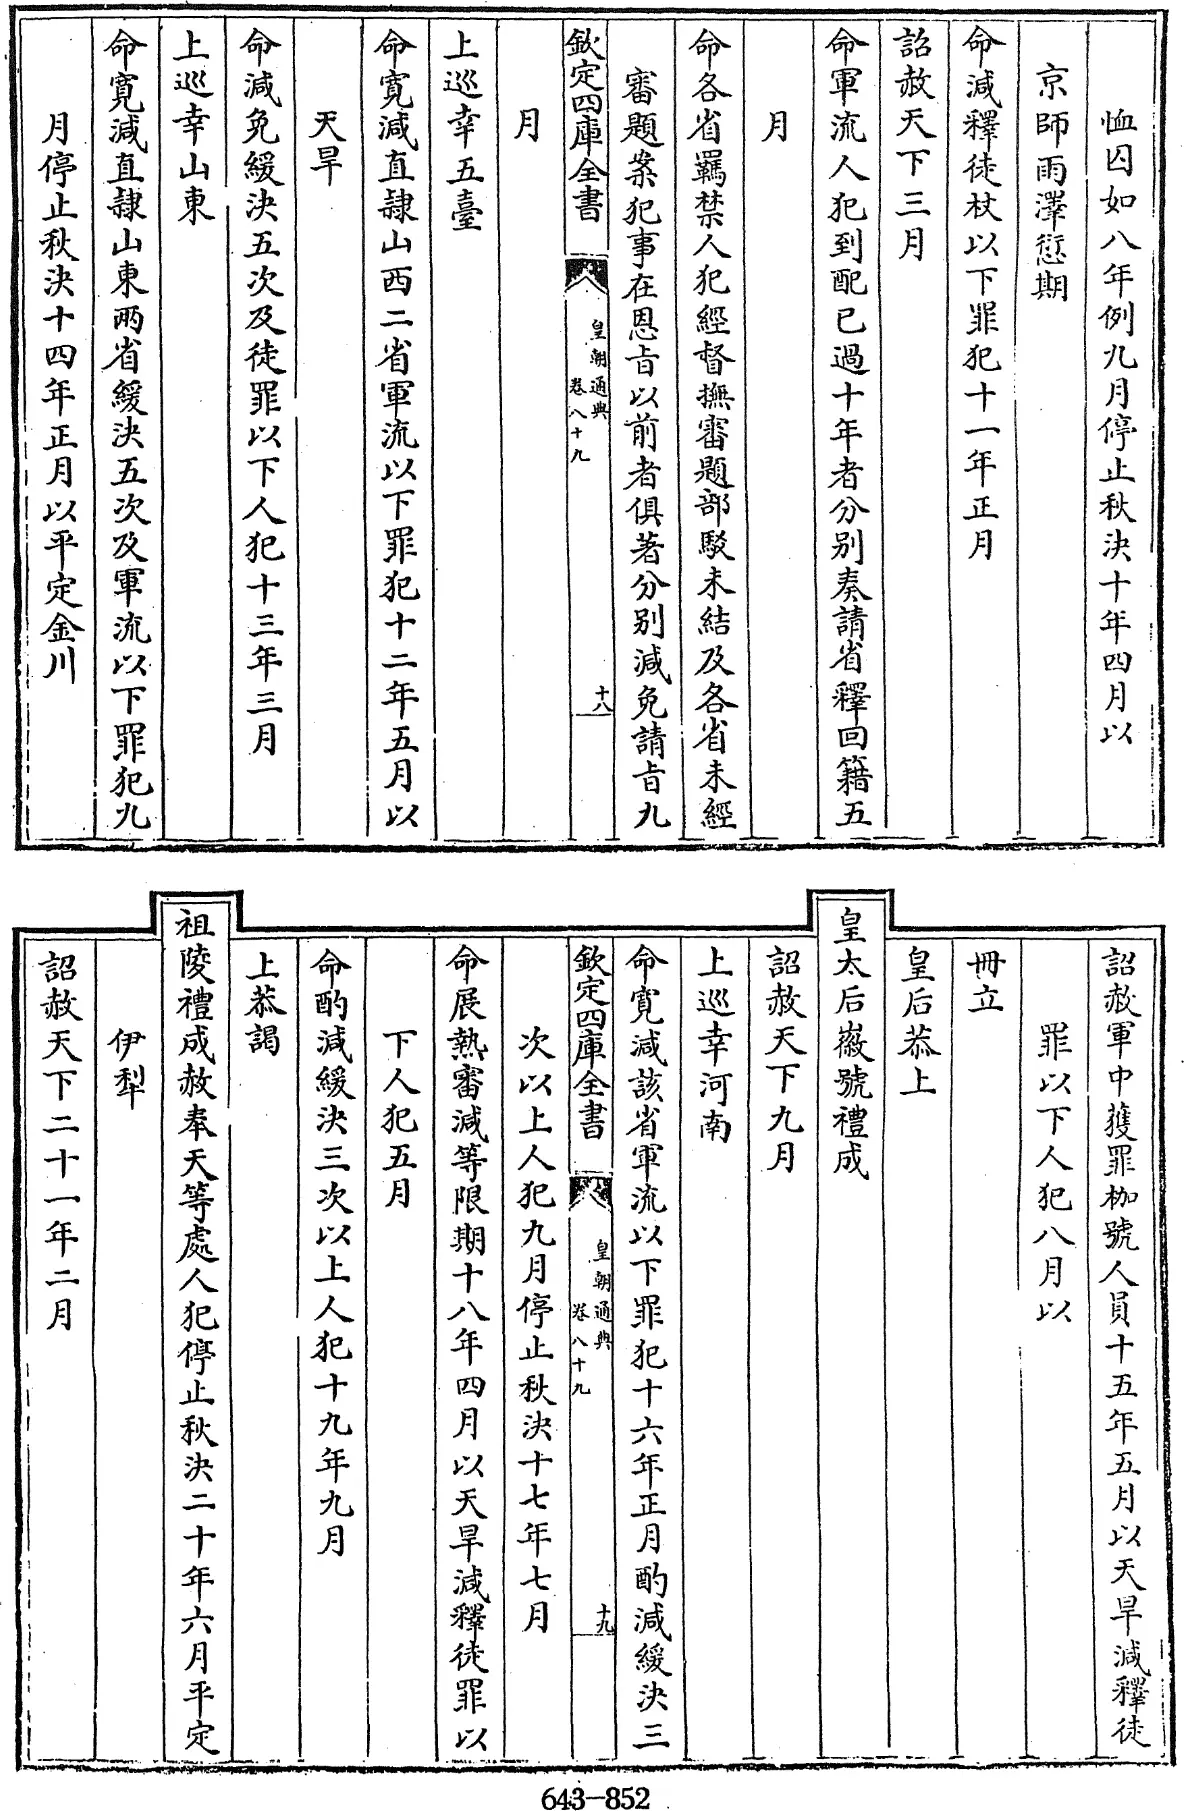 恤囚如八年例九月停止秋決十年四月以
京師雨澤愆期
命減釋徒杖以下罪犯十一年正月
詔赦天下三月
命軍流人犯到配已過十年者分別奏請省釋回籍五
月
命各省羈禁人犯經督撫審題部駁未結及各省未經
審題案犯事在恩旨以前者俱著分別減免請旨九
欽定四庫全書
皇朝通典
卷八十九
十八
月
上巡幸五臺
命寬減直隷山西二省軍流以下罪犯十二年五月以
天旱
命減免緩決五次及徒罪以下人犯十三年三月
上巡幸山東
命寬減直隷山東兩省緩決五次及軍流以下罪犯九
月停止秋決十四年正月以平定金川
詔赦軍中獲罪枷號人員十五年五月以天旱減釋徒
罪以下人犯八月以
冊立
皇后恭上
皇太后徽號禮成
詔赦天下九月
上巡幸河南
命寬減該省軍流以下罪犯十六年正月酌減緩決三
欽定四庫全書
皇朝通典
卷八十九
十九
次以上人犯九月停止秋決十七年七月
命展熱審減等限期十八年四月以天旱減釋徒罪以
下人犯五月
命酌減緩決三次以上人犯十九年九月
上恭謁
祖陵禮成赦奉天等處人犯停止秋決二十年六月平定
伊犁
詔赦天下二十一年二月
643-852